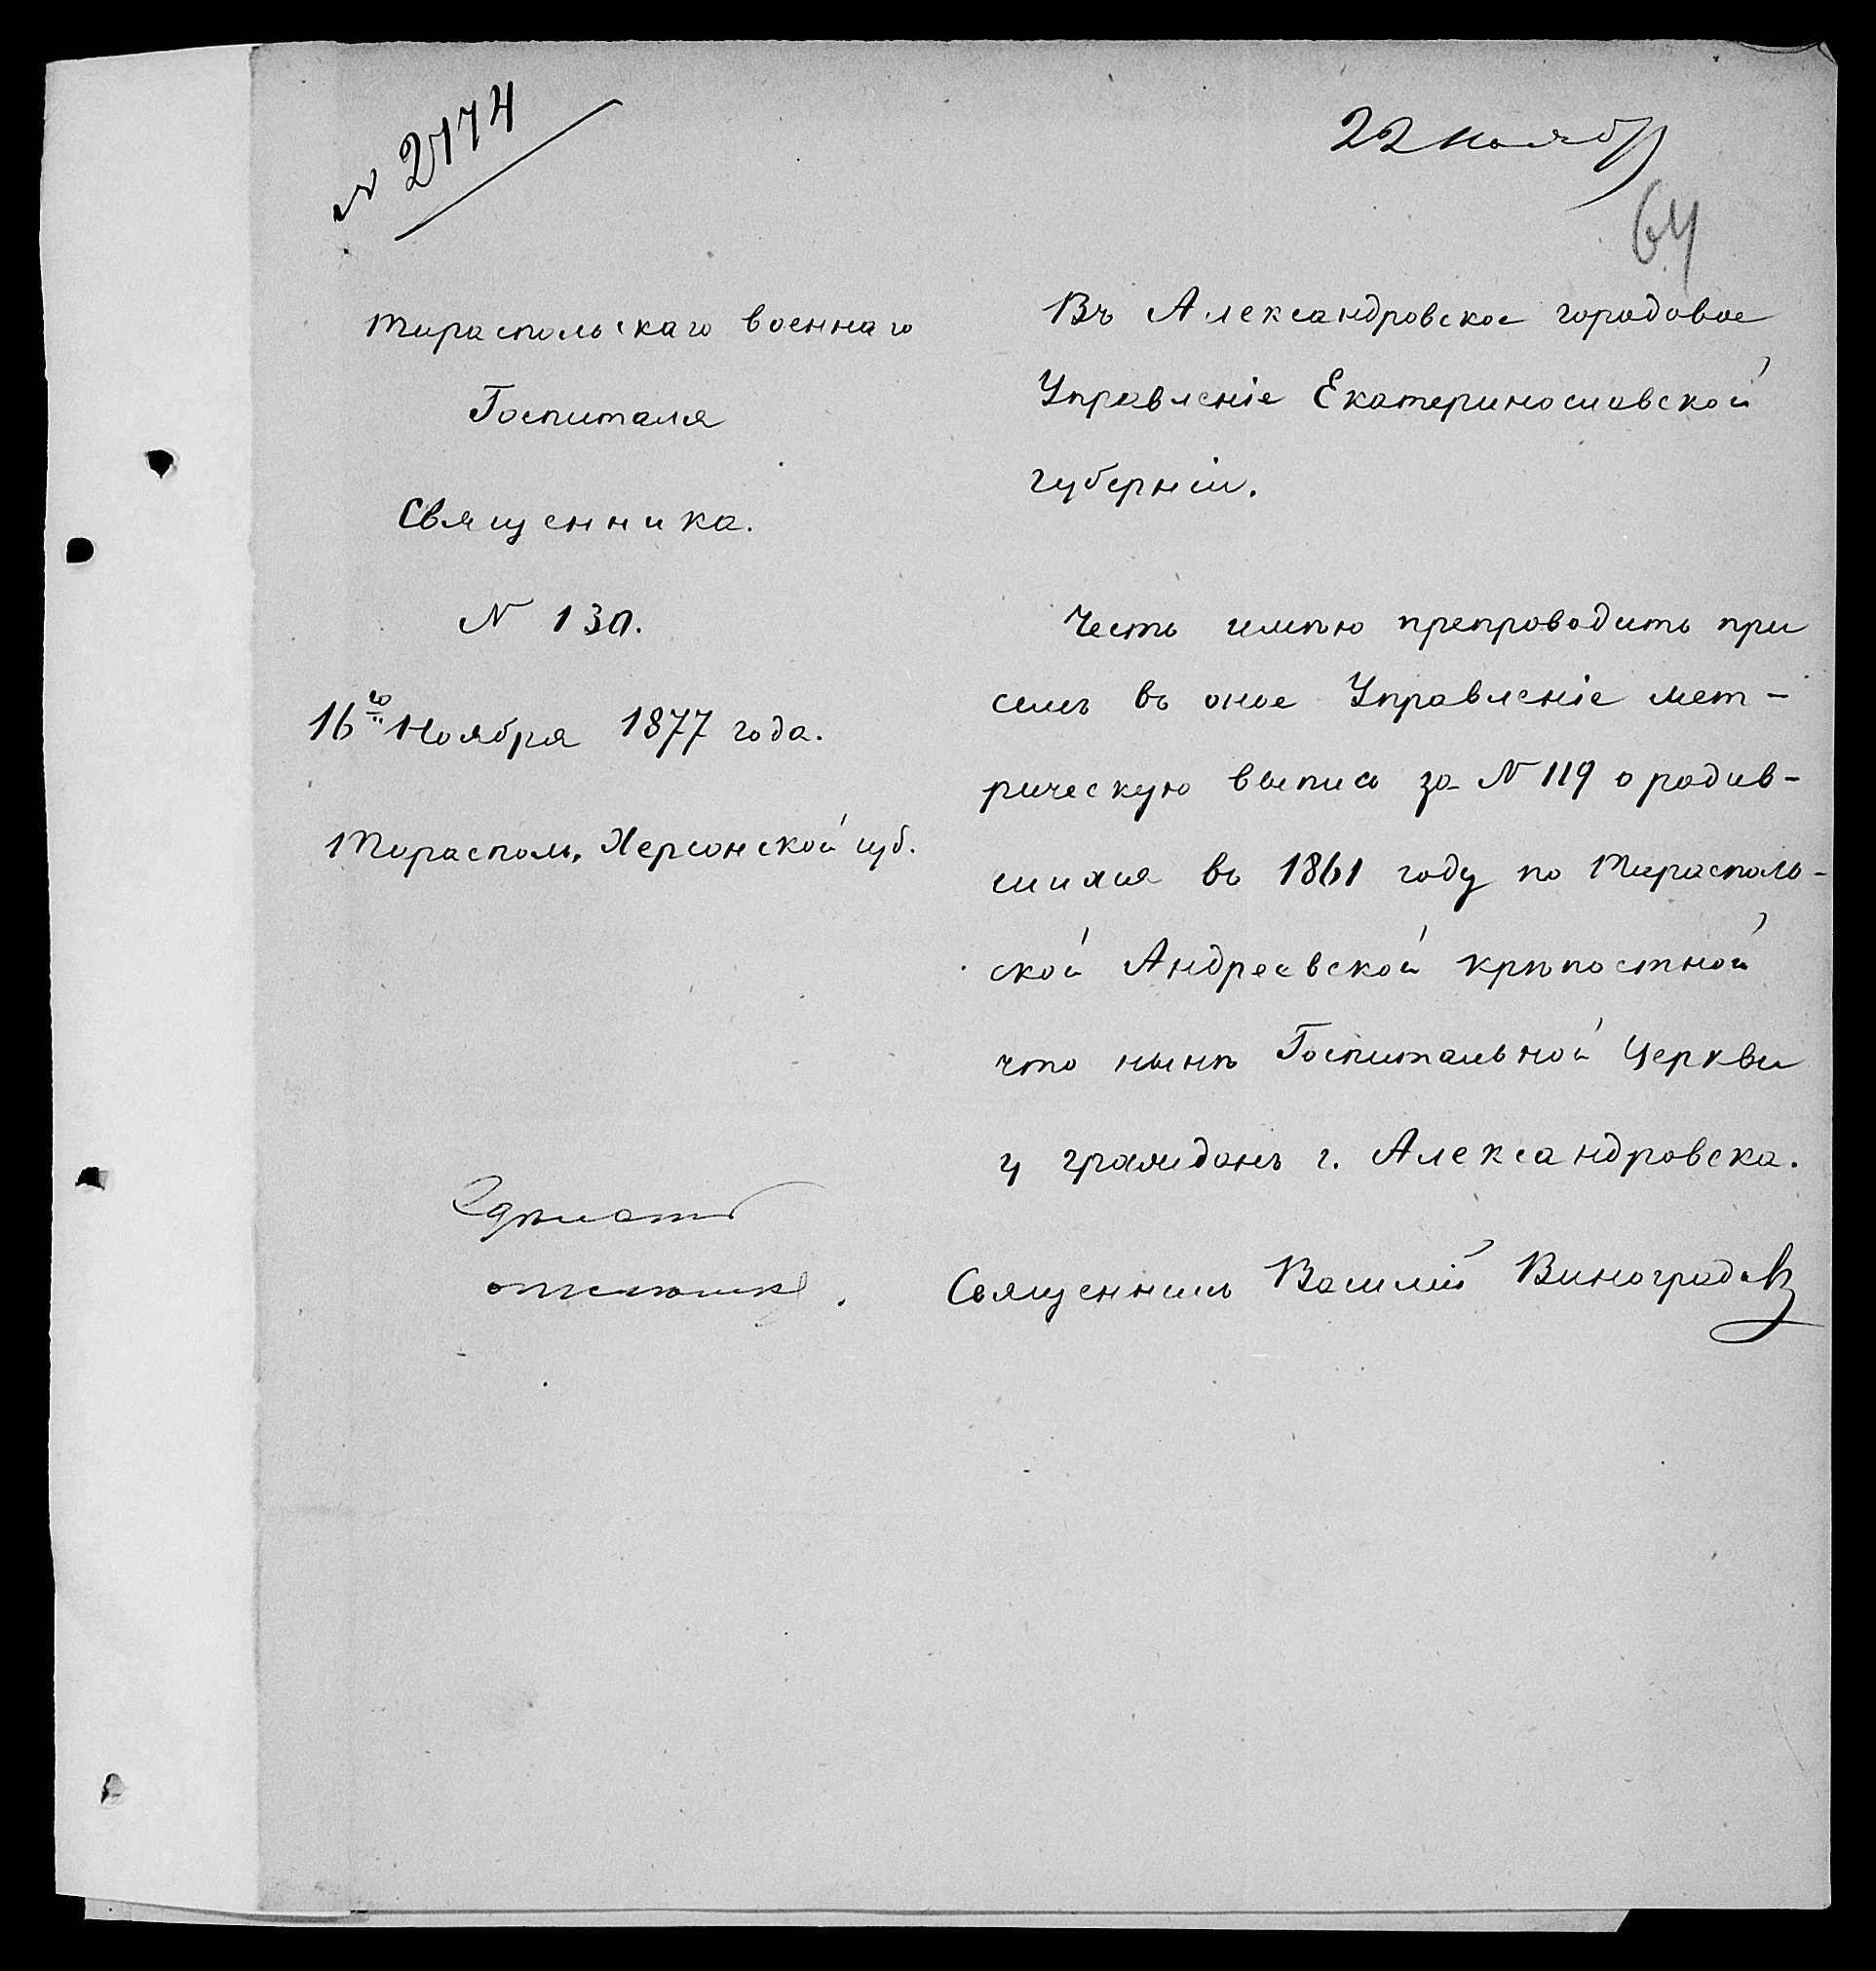 № 2174
22 нояб
64
Тираспольскаго военнаго
Госпиталя
Священника.
№ 130.
16го Ноября 1877 года.
Тирасполь, Херсонской губ.
Въ Александровское городовое
Управленіе Екатеринославской
губерніи.
Честь имѣю препроводить при
семъ въ оное Управленіе мет-
рическую выпись за № 119 о родив-
шихся въ 1861 году по Тирасполь-
ской Андреевской крѣпостной
что нынѣ Госпитальной Церкви
у гражданъ г. Александровска.
Священникъ Василій Виноградовъ